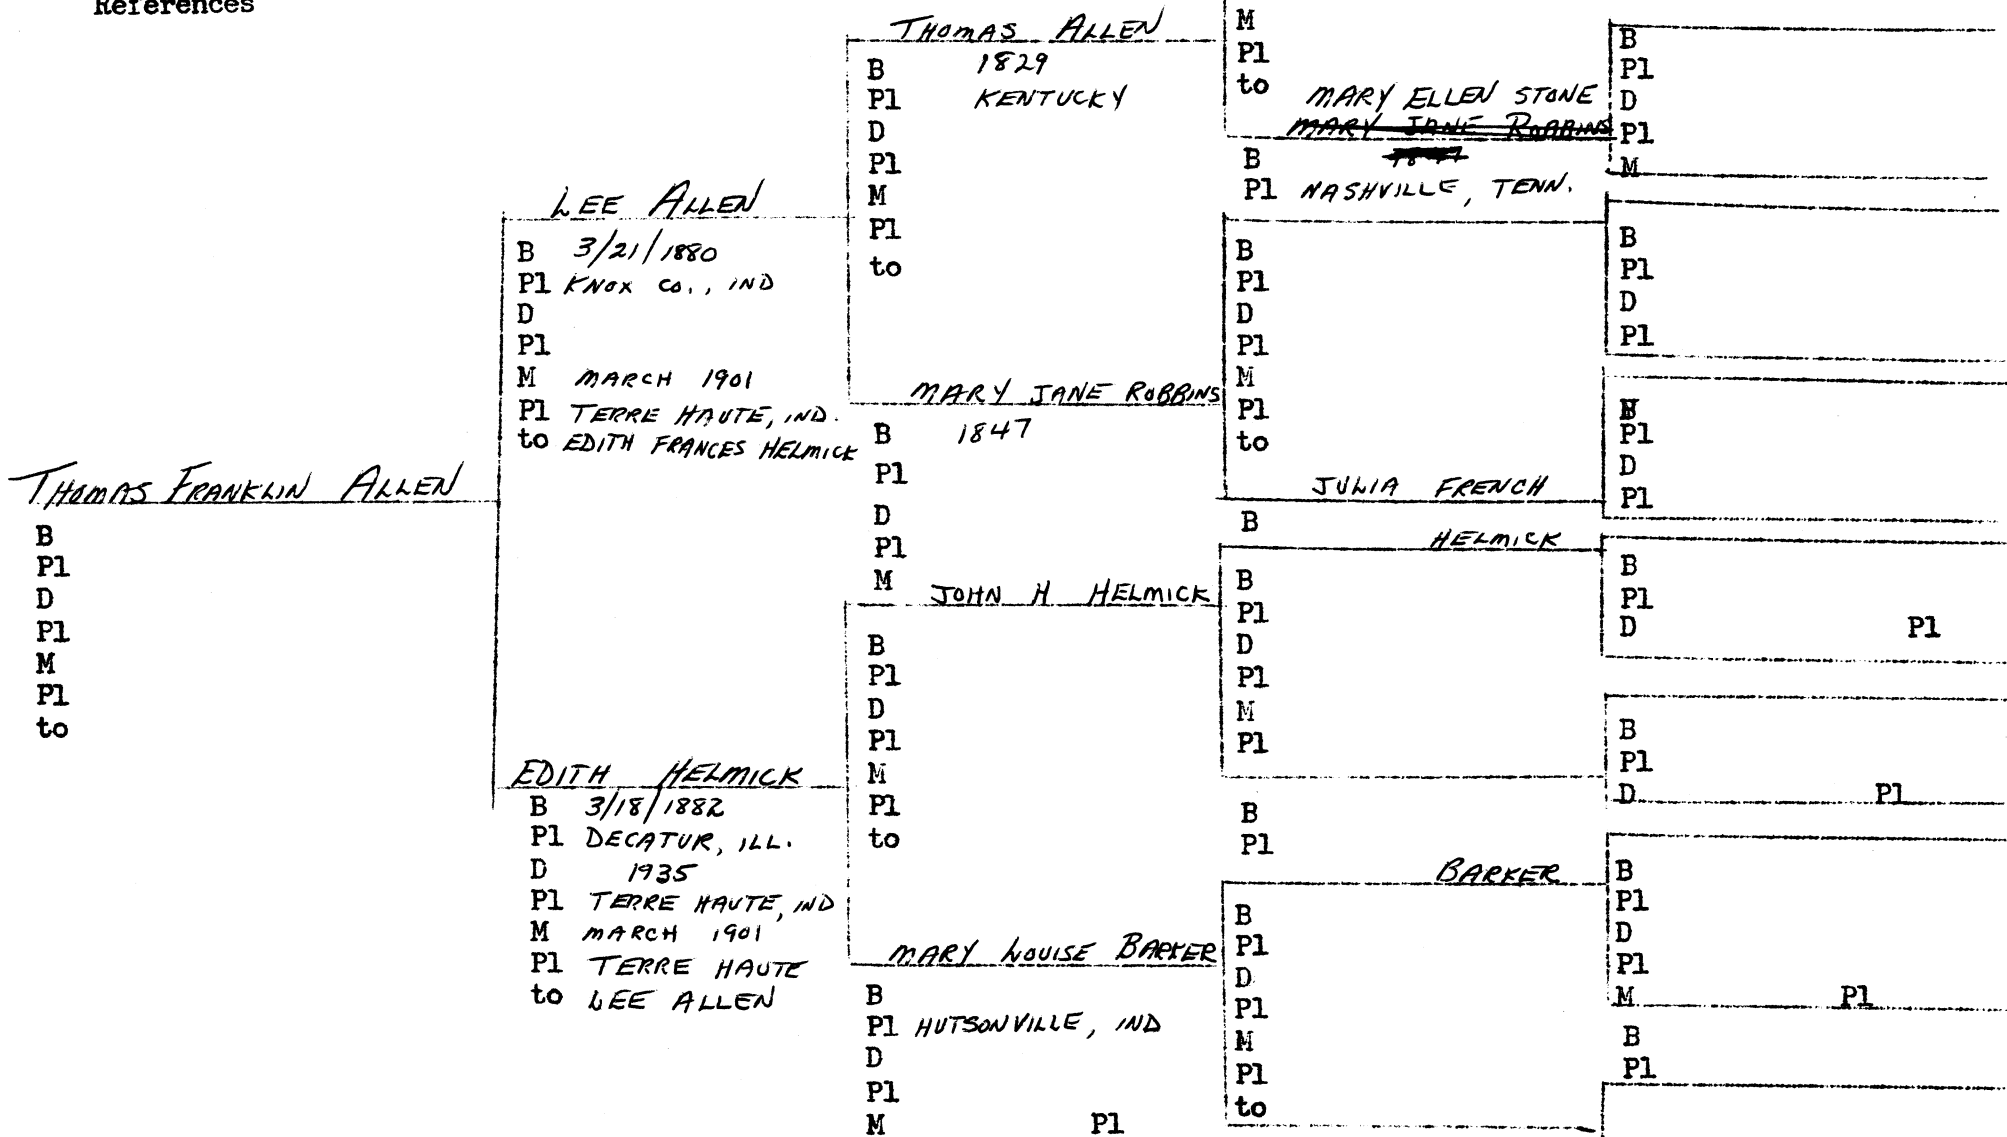 References
THOMAS FRANKLIN ALLEN
B
Pl
D
Pl
M
Pl
to
LEE ALLEN
B 3/21/1880
Pl KNOX CO., IND
D
Pl
M MARCH 1901
Pl TERRE HAUTE, IND.
to EDITH FRANCES HELMICK
EDITH HELMICK
B 3/18/1882
Pl DECATUR, ILL.
D 1935
Pl TERRE HAUTE, IND
M MARCH 1901
Pl TERRE HAUTE
to LEE ALLEN
THOMAS ALLEN
B 1829
Pl KENTUCKY
D
Pl
M
Pl
to
MARY JANE ROBBINS
B 1847
Pl
D
Pl
M
JOHN H HELMICK
B
Pl
D
Pl
M
Pl
to
MARY LOUISE BARKER
B
Pl HUTSONVILLE, IND
D
Pl
M Pl
M
Pl
to
MARY ELLEN STONE
MARY JANE ROBBINS
B 1847
Pl NASHVILLE, TENN.
B
Pl
D
Pl
M
Pl
to
JULIA FRENCH
B
HELMICK
B
Pl
D
Pl
M
Pl
B
Pl
BARKER
B
Pl
D
Pl
M
Pl
to
B
Pl
D
Pl
M
B
Pl
D
Pl
Pl
D
Pl
B
Pl
D Pl
B
Pl
D Pl
B
Pl
D
Pl
M Pl
B
Pl